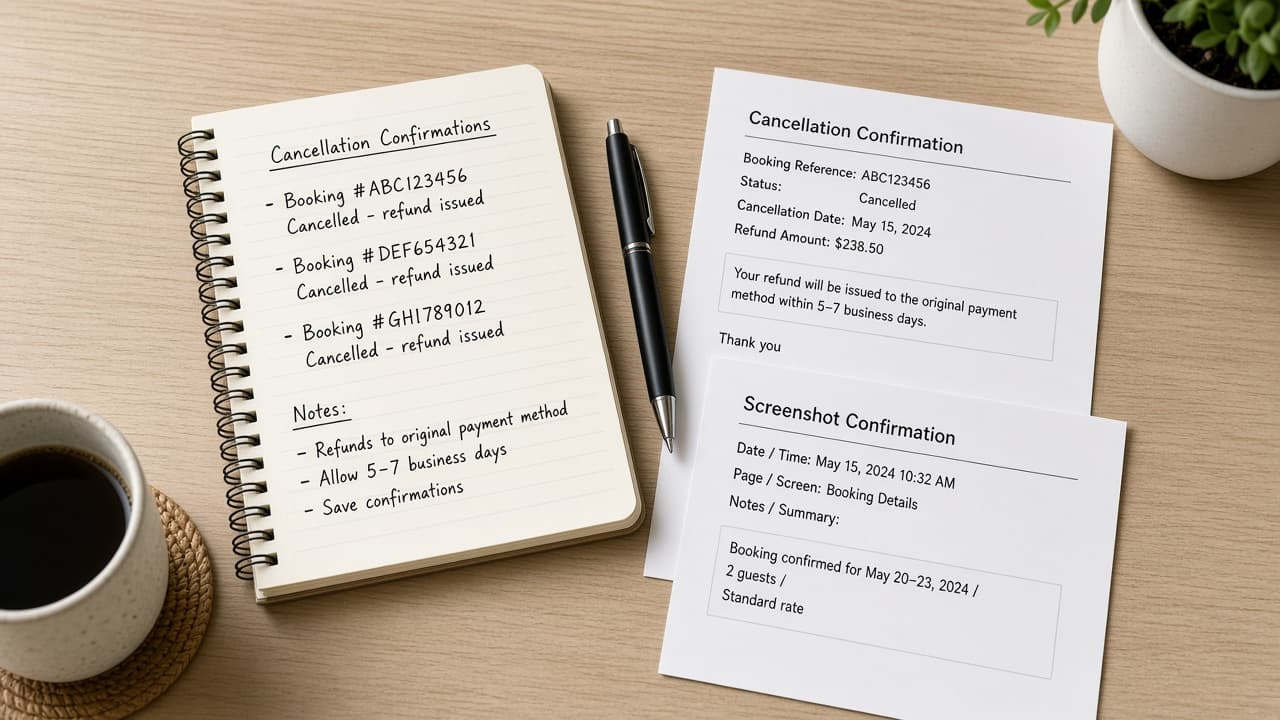 Cancellation Confirmations
- Booking #ABC123456
Cancelled - refund issued
- Booking #DEF654321
Cancelled - refund issued
- Booking #GHI789012
Cancelled - refund issued
Notes:
- Refunds to original payment method
- Allow 5-7 business days
- Save confirmations
Cancellation Confirmation
Booking Reference: ABC123456
Status: Cancelled
Cancellation Date: May 15, 2024
Refund Amount: $238.50
Your refund will be issued to the original payment
method within 5–7 business days.
Thank you
Screenshot Confirmation
Date / Time: May 15, 2024 10:32 AM
Page / Screen: Booking Details
Notes / Summary:
Booking confirmed for May 20–23, 2024 /
2 guests /
Standard rate